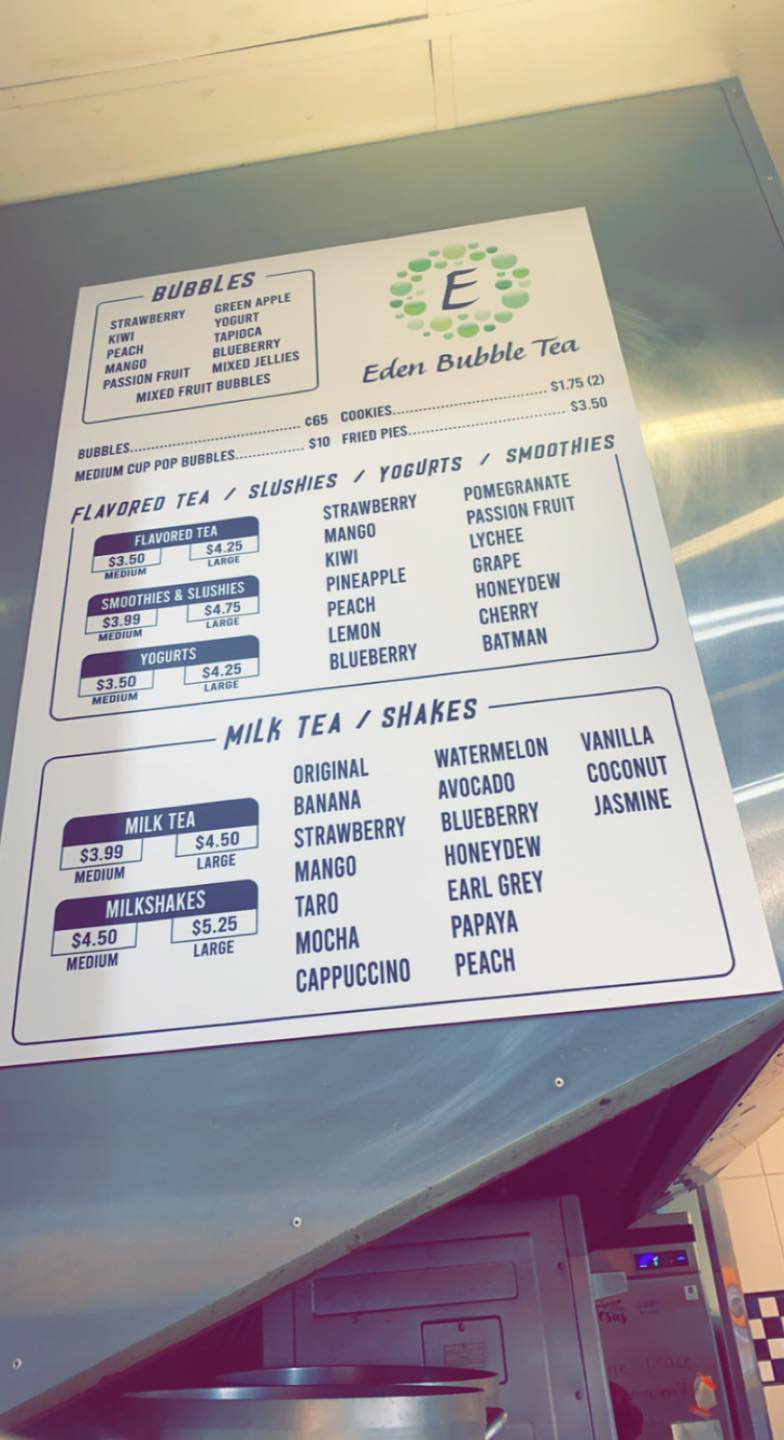 BUBBLES
STRAWBERRY GREEN APPLE
KIWI YOGURT
PEACH TAPIOCA
MANGO BLUEBERRY
PASSION FRUIT MIXED JELLIES
MIXED FRUIT BUBBLES
E
Eden Bubble Tea
BUBBLES............................................ ¢65 COOKIES............................................ $1.75 (2)
MEDIUM CUP POP BUBBLES................ $10 FRIED PIES............................................ $3.50
FLAVORED TEA / SLUSHIES / YOGURTS / SMOOTHIES
FLAVORED TEA
$3.50 $4.25
MEDIUM LARGE
SMOOTHIES & SLUSHIES
$3.99 $4.75
MEDIUM LARGE
YOGURTS
$3.50 $4.25
MEDIUM LARGE
STRAWBERRY
MANGO
KIWI
PINEAPPLE
PEACH
LEMON
BLUEBERRY
POMEGRANATE
PASSION FRUIT
LYCHEE
GRAPE
HONEYDEW
CHERRY
BATMAN
MILK TEA / SHAKES
MILK TEA
$3.99 $4.50
MEDIUM LARGE
MILKSHAKES
$4.50 $5.25
MEDIUM LARGE
ORIGINAL
BANANA
STRAWBERRY
MANGO
TARO
MOCHA
CAPPUCCINO
WATERMELON
AVOCADO
BLUEBERRY
HONEYDEW
EARL GREY
PAPAYA
PEACH
VANILLA
COCONUT
JASMINE